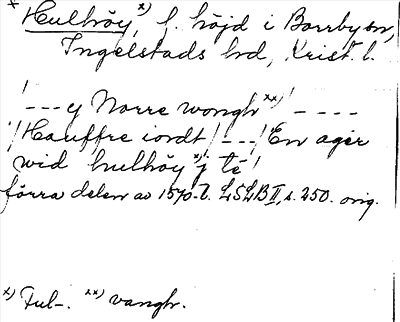 * Hulhöy, x) f. höjd i Borrby sn,
Ingelstads hd, Krist. l.
/--- y Norre wongh xx)/ ----
/Hauffre iordt/ ---/ En ager
wid hulhöy x) j té/
förra delen av 1570-t. LSLB II, s. 250. orig.
x) Ful-. xx) vangh.